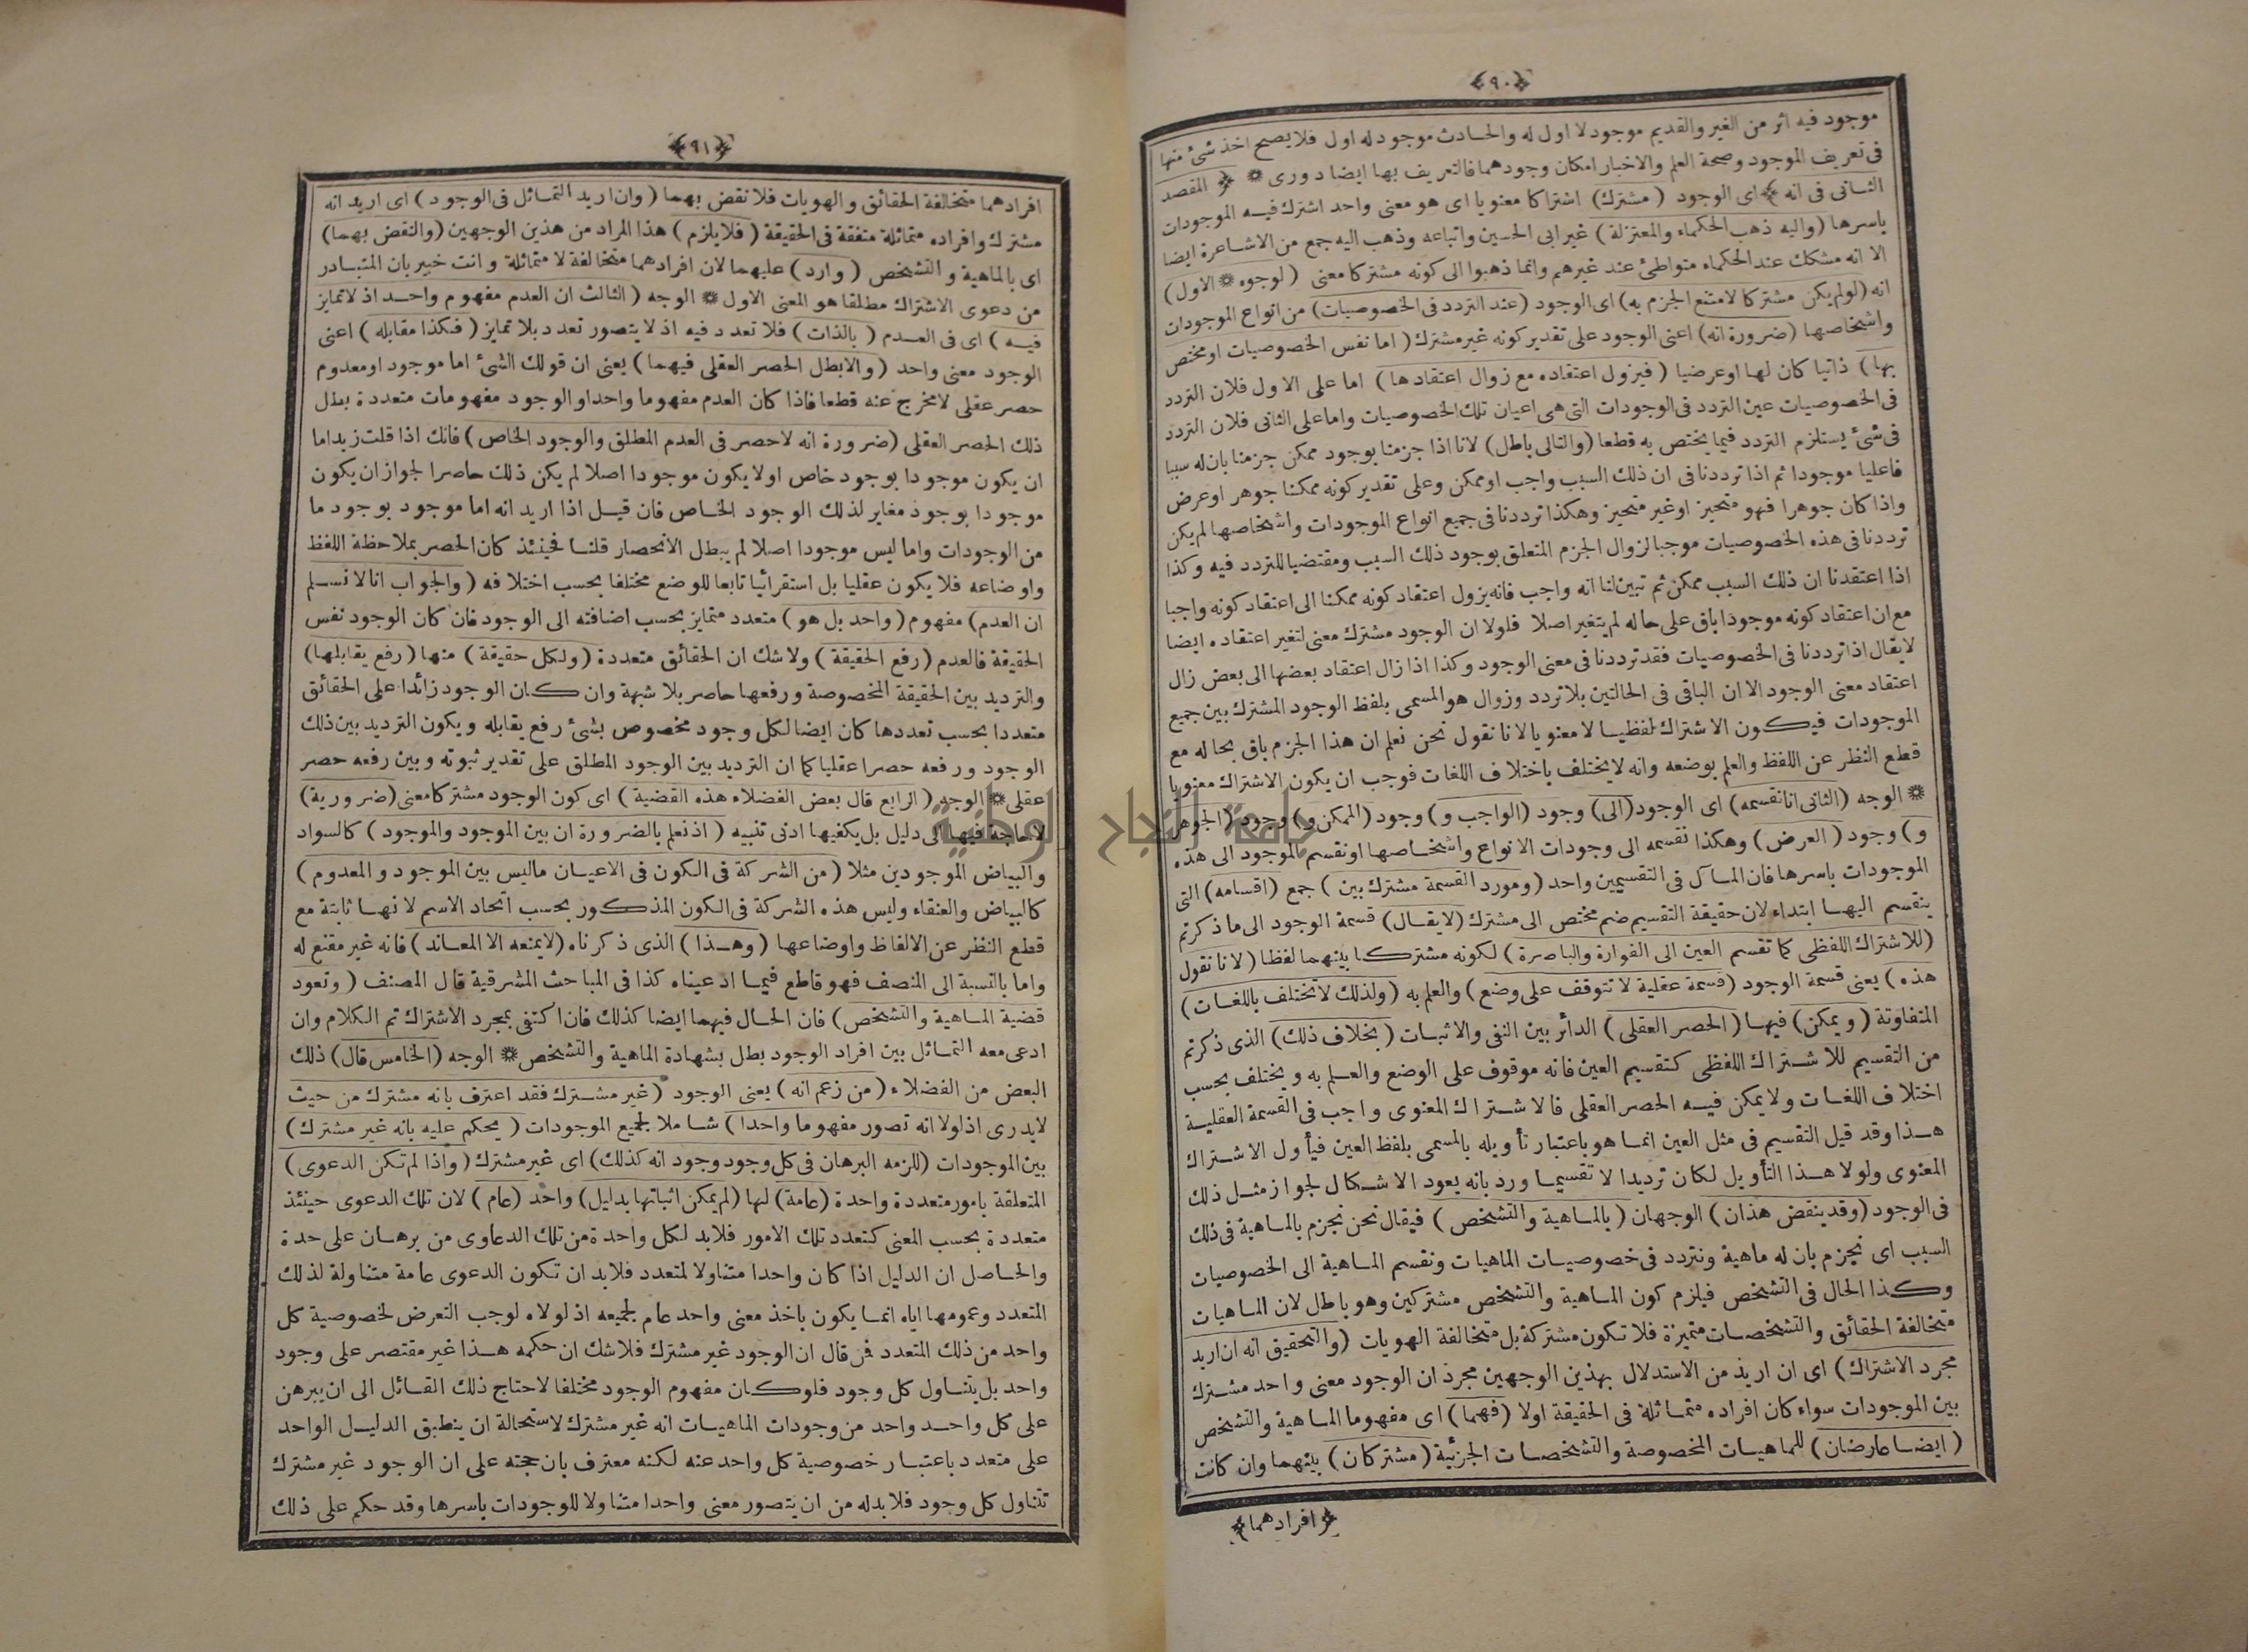 ﴿٩٠﴾
موجود فيه اثر من الغير والقديم موجود لا اول له والحادث موجود له اول فلا يصح اخذ شئ منها
فى تعريف الموجود وصحة العلم والاخبار امكان وجودهما فالتعريف بها ايضا دورى * ﴿ المقصد
الثانى فى انه ﴾ اى الوجود (مشترك) اشتراكا معنويا اى هو معنى واحد اشترك فيه الموجودات
باسرها (واليه ذهب الحكماء والمعتزلة) غير ابى الحسين واتباعه وذهب اليه جمع من الاشاعرة ايضا
الا انه مشكك عند الحكماء متواطئ عند غيرهم وانما ذهبوا الى كونه مشتركا معنى (لوجوه * الاول)
انه (لو لم يكن مشتركا لامتنع الجزم به) اى الوجود (عند التردد فى الخصوصيات) من انواع الموجودات
واشخاصها (ضرورة انه) اعنى الوجود على تقدير كونه غير مشترك (اما نفس الخصوصيات او مختص
بها) ذاتيا كان لها او عرضيا (فيزول اعتقاده مع زوال اعتقادها) اما على الاول فلان التردد
فى الخصوصيات عين التردد فى الوجودات التى هى اعيان تلك الخصوصيات واما على الثانى فلان التردد
فى شئ يستلزم التردد فيما يختص به قطعا (والتالى باطل) لانا اذا جزمنا بوجود ممكن جزمنا بان له سببا
فاعليا موجودا ثم اذا ترددنا فى ان ذلك السبب واجب او ممكن وعلى تقدير كونه ممكنا جوهر او عرض
واذا كان جوهرا فهو متحيز او غير متحيز وهكذا ترددنا فى جميع انواع الموجودات واشخاصها لم يكن
ترددنا فى هذه الخصوصيات موجبا لزوال الجزم المتعلق بوجود ذلك السبب ومقتضيا للتردد فيه وكذا
اذا اعتقدنا ان ذلك السبب ممكن ثم تبين لنا انه واجب فانه يزول اعتقاد كونه ممكنا الى اعتقاد كونه واجبا
مع ان اعتقاد كونه موجودا باق على حاله لم يتغير اصلا فلولا ان الوجود مشترك معنى لتغير اعتقاده ايضا
لا يقال اذا ترددنا فى الخصوصيات فقد ترددنا فى معنى الوجود وكذا اذا زال اعتقاد بعضها الى بعض زال
اعتقاد معنى الوجود الا ان الباقى فى الحالتين بلا تردد وزوال هو المسمى بلفظ الوجود المشترك بين جميع
الموجودات فيكون الاشتراك لفظيا لا معنويا لانا نقول نحن نعلم ان هذا الجزم باق بحاله مع
قطع النظر عن اللفظ والعلم بوضعه وانه لا يختلف باختلاف اللغات فوجب ان يكون الاشتراك معنويا
* الوجه (الثانى انا نقسمه) اى الوجود (الى) وجود (الواجب و) وجود (الممكن و) وجود (الجوهر
و) وجود (العرض) وهكذا نقسمه الى وجودات الانواع واشخاصها او نقسم الموجود الى هذه
الموجودات باسرها فان المآل فى التقسيمين واحد (ومورد القسمة مشترك بين) جمع (اقسامه) التى
ينقسم اليها ابتداء لان حقيقة التقسيم ضم مختص الى مشترك (لا يقال) قسمة الوجود الى ما ذكرتم
(للاشتراك اللفظى كما تقسم العين الى الفوارة والباصرة) لكونه مشتركا بينهما لفظا (لانا نقول
هذه) يعنى قسمة الوجود (قسمة عقلية لا تتوقف على وضع) والعلم به (ولذلك لا تختلف باللغات)
المتفاوتة (ويمكن) فيها (الحصر العقلى) الدائر بين النفى والاثبات (بخلاف ذلك) الذى ذكرتم
من التقسيم للاشتراك اللفظى كتقسيم العين فانه موقوف على الوضع والعلم به ويختلف بحسب
اختلاف اللغات ولا يمكن فيه الحصر العقلى فالاشتراك المعنوى واجب فى القسمة العقلية
هذا وقد قيل التقسيم فى مثل العين انما هو باعتبار تأويله بالمسمى بلفظ العين فيأول الاشتراك
المعنوى ولولا هذا التأويل لكان ترديدا لا تقسيما ورد بانه يعود الاشكال لجواز مثل ذلك
فى الوجود (وقد ينقض هذان) الوجهان (بالماهية والتشخص) فيقال نحن نجزم بالماهية فى ذلك
السبب اى نجزم بان له ماهية ونتردد فى خصوصيات الماهيات ونقسم الماهية الى الخصوصيات
وكذا الحال فى التشخص فيلزم كون الماهية والتشخص مشتركين وهو باطل لان الماهيات
متخالفة الحقائق والتشخصات متميزة فلا تكون مشتركة بل متخالفة الهويات (والتحقيق انه ان اريد
مجرد الاشتراك) اى ان اريد من الاستدلال بهذين الوجهين مجرد ان الوجود معنى واحد مشترك
بين الموجودات سواء كان افراده متماثلة فى الحقيقة اولا (فهما) اى مفهوما الماهية والتشخص
(ايضا عارضان) للماهيات المخصوصة والتشخصات الجزئية (مشتركان) بينهما وان كانت
﴿افرادهما﴾
﴿٩١﴾
افرادهما متخالفة الحقائق والهويات فلا نقض بهما (وان اريد التماثل فى الوجود) اى اريد انه
مشترك وافراده متماثلة متفقة فى الحقيقة (فلا يلزم) هذا المراد من هذين الوجهين (والنقض بهما)
اى بالماهية والتشخص (وارد) عليهما لان افرادهما متخالفة لا متماثلة وانت خبير بان المتبادر
من دعوى الاشتراك مطلقا هو المعنى الاول * الوجه (الثالث ان العدم مفهوم واحد اذ لا تمايز
فيه) اى فى العدم (بالذات) فلا تعدد فيه اذ لا يتصور تعدد بلا تمايز (فكذا مقابله) اعنى
الوجود معنى واحد (والا بطل الحصر العقلى فيهما) يعنى ان قولك الشئ اما موجود او معدوم
حصر عقلى لا مخرج عنه قطعا فاذا كان العدم مفهوما واحدا والوجود مفهومات متعددة بطل
ذلك الحصر العقلى (ضرورة انه لا حصر فى العدم المطلق والوجود الخاص) فانك اذا قلت زيد اما
ان يكون موجودا بوجود خاص او لا يكون موجودا اصلا لم يكن ذلك حاصرا لجواز ان يكون
موجودا بوجود مغاير لذلك الوجود الخاص فان قيل اذا اريد انه اما موجود بوجود ما
من الوجودات واما ليس موجودا اصلا لم يبطل الانحصار قلنا فحينئذ كان الحصر بملاحظة اللفظ
واوضاعه فلا يكون عقليا بل استقرائيا تابعا للوضع مختلفا بحسب اختلافه (والجواب انا لا نسلم
ان العدم) مفهوم (واحد بل هو) متعدد متمايز بحسب اضافته الى الوجود فان كان الوجود نفس
الحقيقة فالعدم (رفع الحقيقة) ولا شك ان الحقائق متعددة (ولكل حقيقة) منها (رفع يقابلها)
والترديد بين الحقيقة المخصوصة ورفعها حاصر بلا شبهة وان كان الوجود زائدا على الحقائق
متعددا بحسب تعددها كان ايضا لكل وجود مخصوص بشئ رفع يقابله ويكون الترديد بين ذلك
الوجود ورفعه حصرا عقليا كما ان الترديد بين الوجود المطلق على تقدير ثبوته وبين رفعه حصر
عقلى * الوجه (الرابع قال بعض الفضلاء هذه القضية) اى كون الوجود مشتركا معنى (ضرورية)
لا حاجة فيها الى دليل بل يكفيها ادنى تنبيه (اذ نعلم بالضرورة ان بين الموجود والموجود) كالسواد
والبياض الموجودين مثلا (من الشركة فى الكون فى الاعيان ما ليس بين الموجود والمعدوم)
كالبياض والعنقاء وليس هذه الشركة فى الكون المذكور بحسب اتحاد الاسم لانها ثابتة مع
قطع النظر عن الالفاظ واوضاعها (وهذا) الذى ذكرناه (لا يمنعه الا المعاند) فانه غير مقنع له
واما بالنسبة الى المنصف فهو قاطع فيما ادعيناه كذا فى المباحث المشرقية قال المصنف (وتعود
قضية الماهية والتشخص) فان الحال فيهما ايضا كذلك فان اكتفى بمجرد الاشتراك تم الكلام وان
ادعى معه التماثل بين افراد الوجود بطل بشهادة الماهية والتشخص * الوجه (الخامس قال) ذلك
البعض من الفضلاء (من زعم انه) يعنى الوجود (غير مشترك فقد اعترف بانه مشترك من حيث
لا يدرى اذ لولا انه تصور مفهوما واحدا) شاملا لجميع الموجودات (يحكم عليه بانه غير مشترك)
بين الموجودات (للزمه البرهان فى كل وجود وجود انه كذلك) اى غير مشترك (واذا لم تكن الدعوى)
المتعلقة بامور متعددة واحدة (عامة) لها (لم يمكن اثباتها بدليل) واحد (عام) لان تلك الدعوى حينئذ
متعددة بحسب المعنى كتعدد تلك الامور فلا بد لكل واحدة من تلك الدعاوى من برهان على حدة
والحاصل ان الدليل اذا كان واحدا متناولا لمتعدد فلا بد ان تكون الدعوى عامة متناولة لذلك
المتعدد وعمومها اياه انما يكون باخذ معنى واحد عام لجميعه اذ لولاه لوجب التعرض لخصوصية كل
واحد من ذلك المتعدد فمن قال ان الوجود غير مشترك فلا شك ان حكمه هذا غير مقتصر على وجود
واحد بل يتناول كل وجود فلو كان مفهوم الوجود مختلفا لاحتاج ذلك القائل الى ان يبرهن
على كل واحد واحد من وجودات الماهيات انه غير مشترك لاستحالة ان ينطبق الدليل الواحد
على متعدد باعتبار خصوصية كل واحد عنه لكنه معترف بان حجته على ان الوجود غير مشترك
تتناول كل وجود فلا بد له من ان يتصور معنى واحدا متناولا للوجودات باسرها وقد حكم على ذلك
جامعة النجاح الوطنية